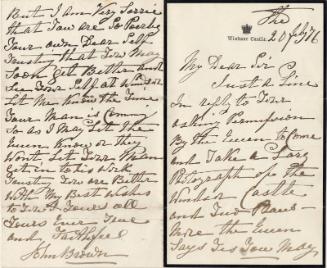 The
Windsor Castle.
20 July 76
My Dear Sir
Just a Line
In reply to Your
asking Permission
By the Queen to Come
and Take a Larg
Photograph of the
Windsor Castle
and
more the Queen
Says Yes You May,
But I am Very Sorrie
that You are So Poorly
Your own Dear Self
Trusting that You May
Soon Get Better and
See Your Self at Windsor
Let Me know the Time
Your Man is Coming
So as I May Let the
Queen Know or they
Wont Let Your Man
in to his Work
Trusting You are Better
With My Best Wishes
to You &amp; Yours all
Yours Ever True
and Faithful
John Brown